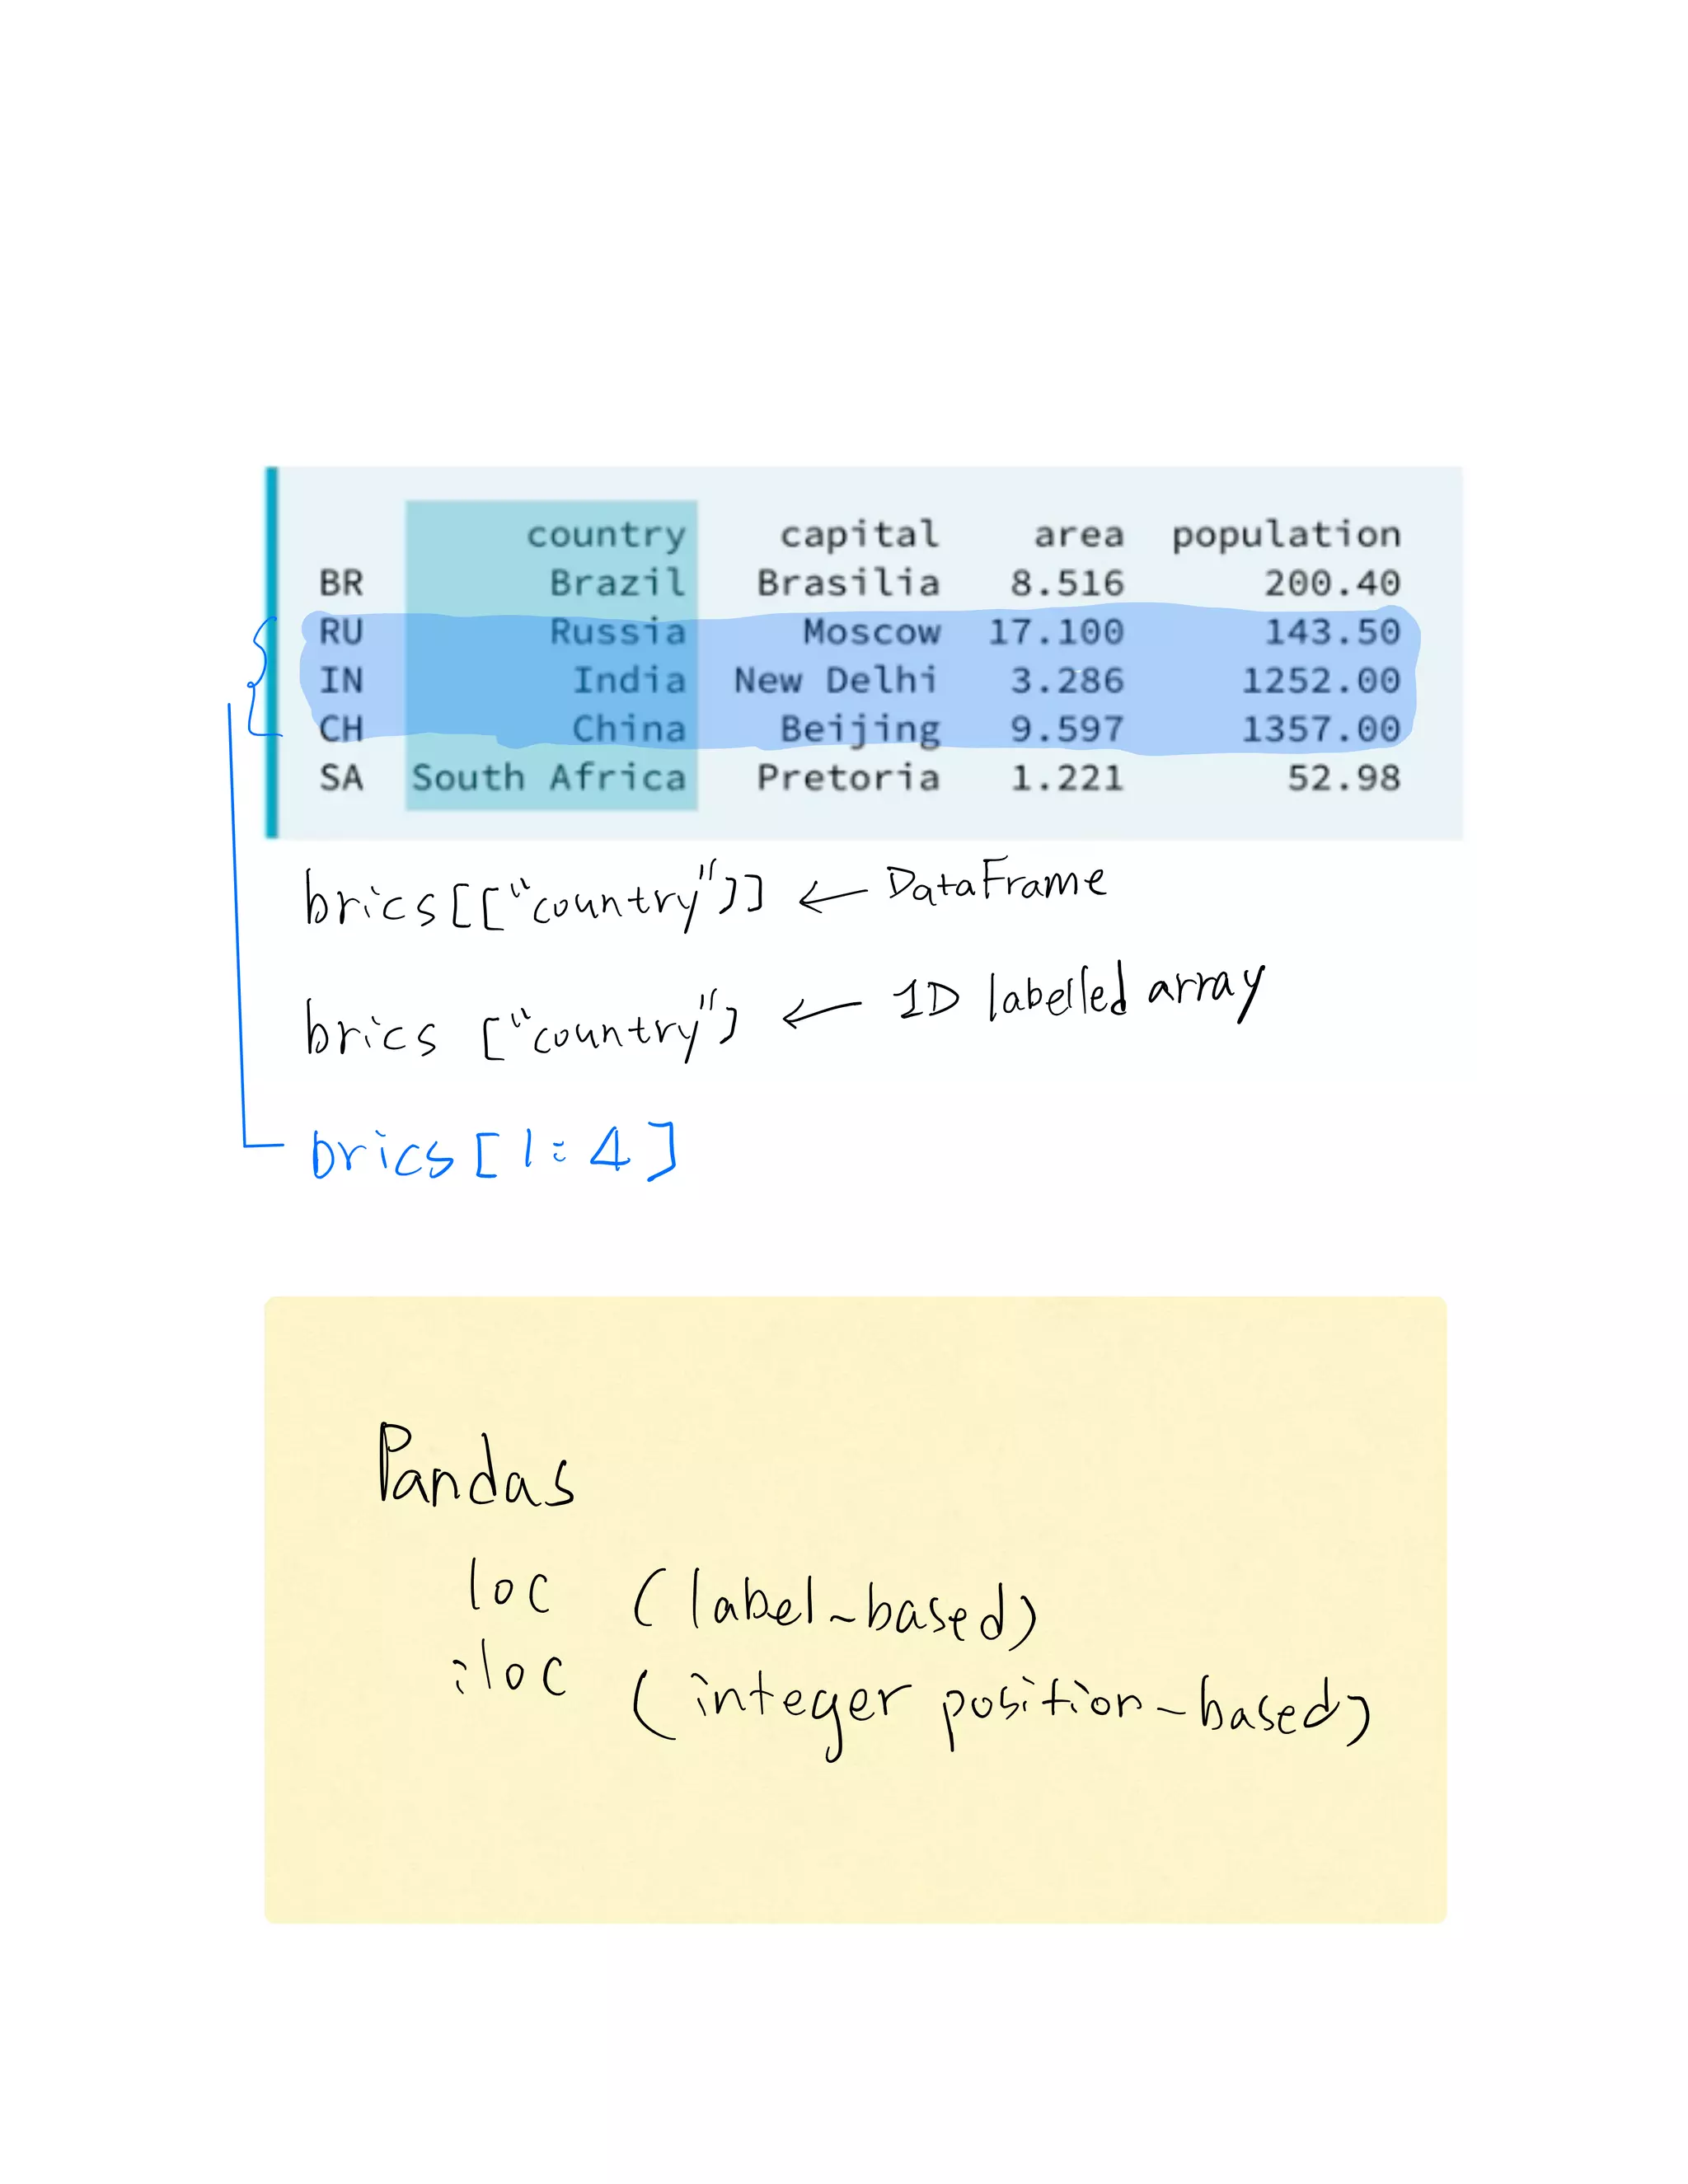 country capital area population
BR Brazil Brasilia 8.516 200.40
RU Russia Moscow 17.100 143.50
IN India New Delhi 3.286 1252.00
CH China Beijing 9.597 1357.00
SA South Africa Pretoria 1.221 52.98
brics[["country"]] ← DataFrame
brics ["country"] ← 1D labelled array
brics[1:4]
Pandas
loc (label-based)
iloc (integer position-based)